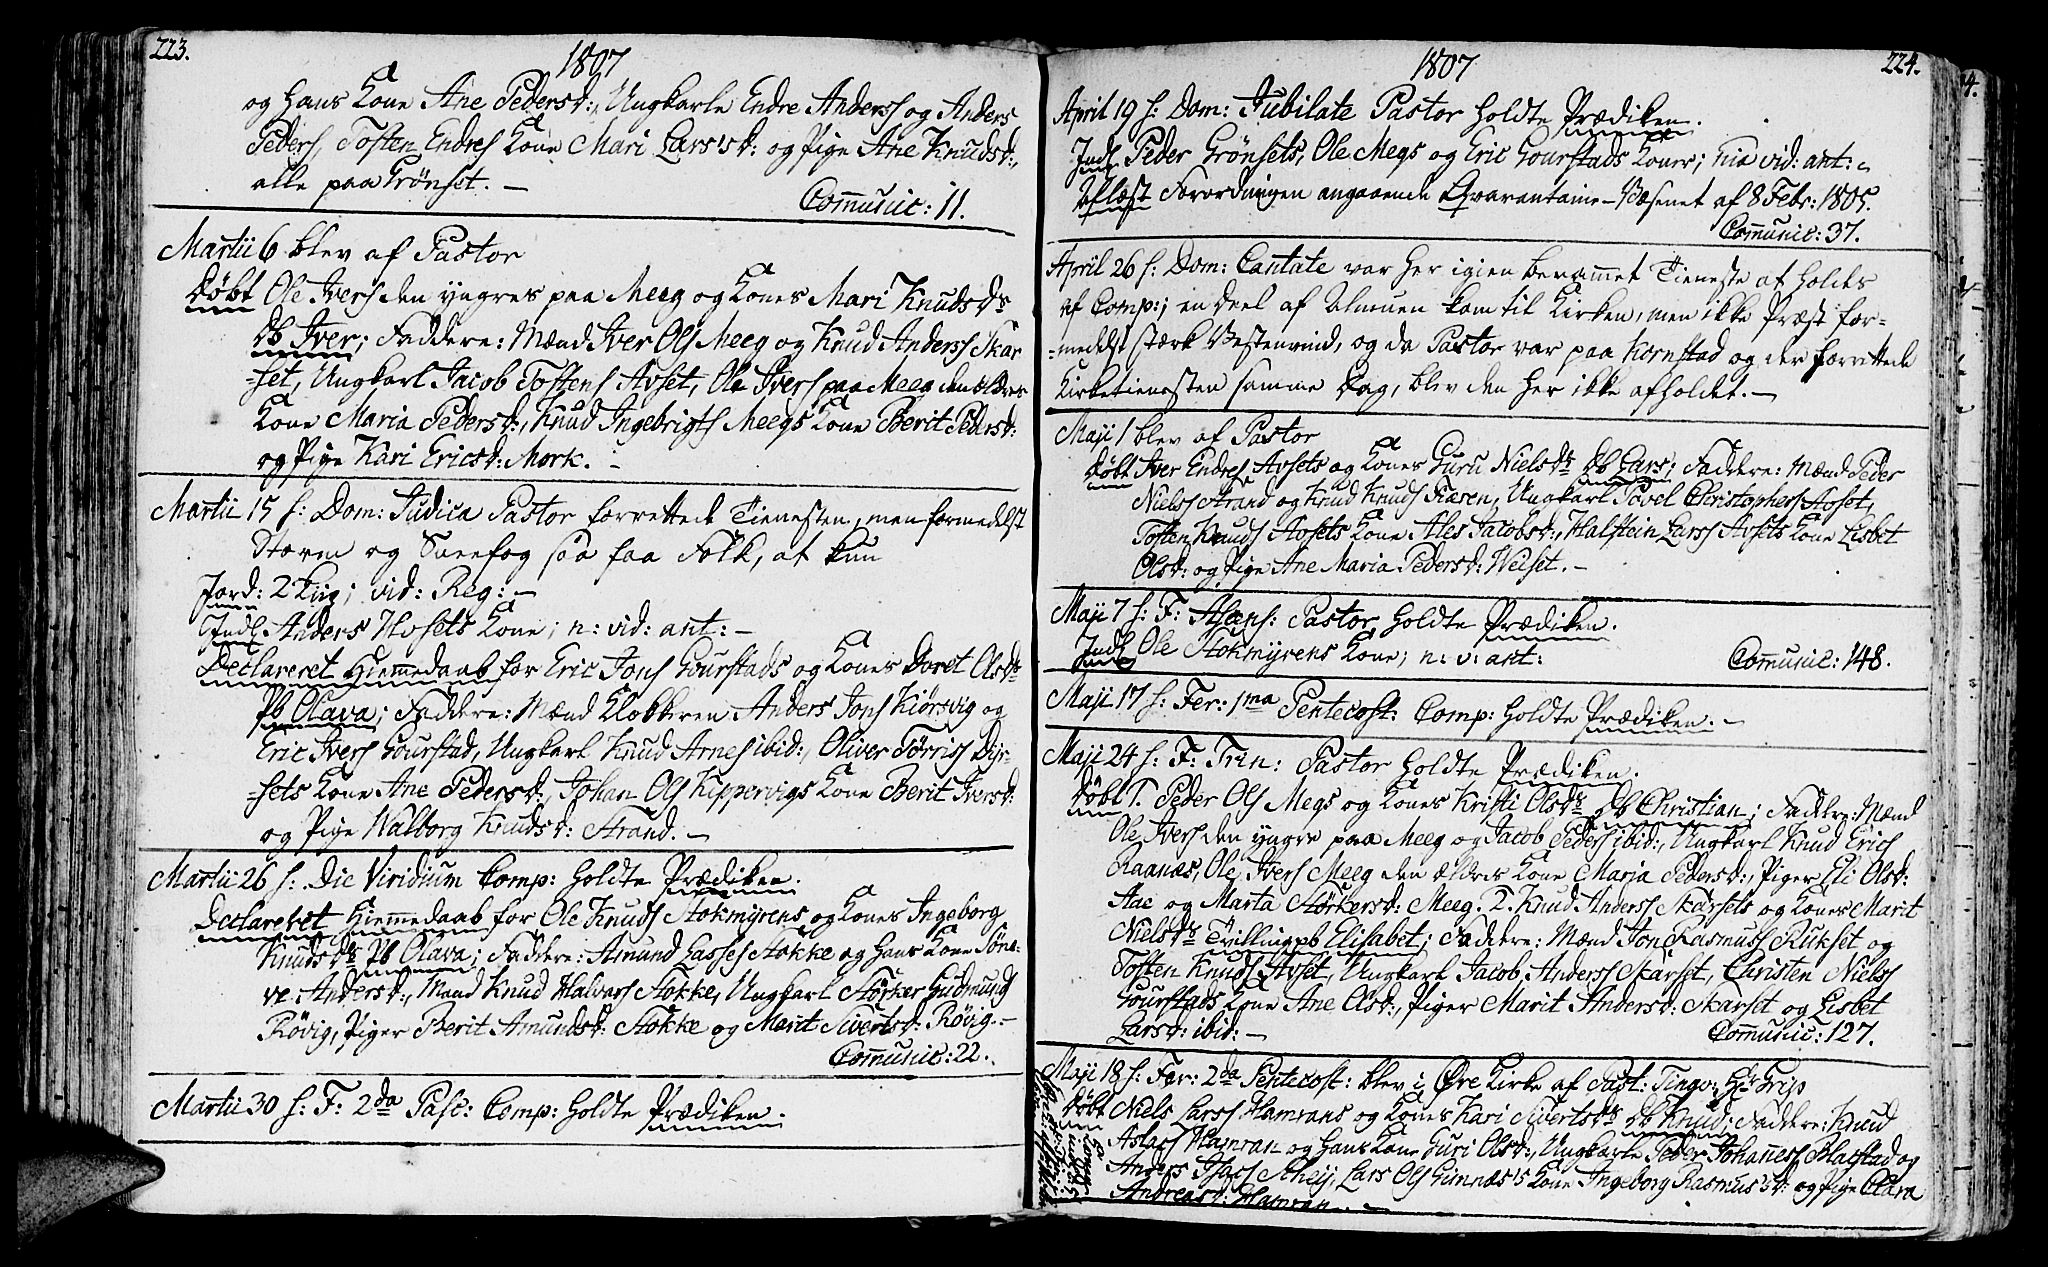 223.
1807
og hans Kone Ane Pedersd:, Ungkarle Endre Anders og Anders
Peders, Tosten Endres Kone Mari Larsd: og Pige Ane Knudsd:,
alle paa Grönset. –
Communic: 11.
Martii 6 blev af Pastor
Döbt Ole Ivers den yngres paa Meeg og Kones Mari Knudsdr
Db Iver; Faddere: Mænd Iver Ols Meeg og Knud Anders Skar
-set, Ungkarl Jacob Tostens Avset, Ole Ivers paa Meeg den ældres
Kone Maria Pedersd:, Knud Ingebrigts Meegs Kone Berit Pedersd:
og Pige Kari Ericsd: Mork. –
Martii 15 s: Dom: Judica Pastor forrettede Tienesten, men formedelst
Storm og Sneefog saa faa Folk, at kun
Jord: 2 Liig; vid: Reg: –
Indl. Anders Hosets Kone; n: vid: ant: –
Declareret Hiemmedaab for Eric Jons Gourstads og Kones Doret Olsdr
Pb Olava; Faddere: Mænd Klokkeren Anders Jons Kiörsvig og
Eric Ivers Gourstad, Ungkarl Knud Arnes ibid:, Oliver Törris Dyr-
-sets Kone Ane Pedersd:, Johan Ols Kippervigs Kone Berit Iversd:
og Pige Walborg Knudsd: Strand. –
Martii 26 s: Die Viridium Comp: holdte Prædiken.
Declareret Hiemmedaab for Ole Knuds Stokmyrens og Kones Ingeborg
Knudsdr Pb Olava; Faddere: Amund Lasses Stokke og hans Kone Söne-
ve Andersd:, Mand Knud Halvors Stokke, Ungkarl Störker Gudmunds
Rövig, Piger Berit Amundsd: Stokke og Marit Sivertsd: Rövig. –
Communic: 22.
Martii 30 s: F: 2da Pasc: Comp: holdte Prædiken.
1807
224.
April 19 s: Dom: Jubilate Pastor holdte Prædiken.
Indl. Peder Grönsets, Ole Megs og Eric Gourstads Koner; hia vid: ant: –
Oplæst Forordningen angaaende Qvarantaine-Væsenet af 8 Febr: 1805.
Communic: 37.
April 26 s: Dom: Cantate var her igien berammet Tieneste at holdes
af Comp:; en Deel af Almuen kom til Kirken, men ikke Præst for-
-medelst stærk Vestenvind, og da Pastor var paa Kornstad og der forrettede
Kirketienesten samme Dag, blev den her ikke afholdet. –
Maji 1 blev af Pastor
Döbt Iver Endres Avsets og Kones Guru Nielsdr Db Lars; Faddere: Mænd Peder
Niels Strand og Knud Knuds Fiæren, Ungkarl Povel Christophers Avset,
Tosten Knuds Avsets Kone Ales Jacobsd:, Halstein Lars Avsets Kone Lisbet
Olsd: og Pige Ane Maria Pedersd: Weiset. –
Maji 7 s: F: Ascens: Pastor holdte Prædiken.
Indl Ole Stokmyrens Kone; n: v: ant:
Communic: 148.
Maji 17 s: Fer: 1ma Pentecost: Comp: holdte Prædiken. –
Maji 24 s: F: Trin: Pastor holdte Prædiken.
Döbt 1. Peder Ols Megs og Kones Kristi Olsdr Db Christian; Faddere: Mænd
Ole Ivers den yngre paa Meeg og Jacob Peders ibid:, Ungkarl Knud Erics
Raanæs, Ole Ivers Meeg den ældres Kone Maria Pedersd:, Piger Eli Olsd:
Aae og Marta Störkersd: Meeg. 2. Knud Anders Skarsets og Kones Marit
Nielsdr Tvillingpb Elisabet; Faddere: Mænd Jon Rasmuss Rukset og
Tosten Knuds Avset, Ungkarl Jacob Anders Skarset, Christen Niels
Gourstads Kone Ane Olsd:, Piger Marit Andersd: Skarset og Lisbet
Larsd: ibid: –
Communic: 127.
Maji 18 s: Fer: 2da Pentecost: blev i Öre Kirke af Past: Tingv: H: Grip
Döbt Niels Lars Hamrans og Kones Kari Sivertsdr Db Knud; Faddere: Knud
Aslags Hamran og hans Kone Guri Olsd:, Ungkarle Peder Johanness Blakstad og
Anders Isacs Scheij, Lars Ols Gimnæs's Kone Ingeborg Rasmusd: og Pige Clara
Andreasd: Hamran. –